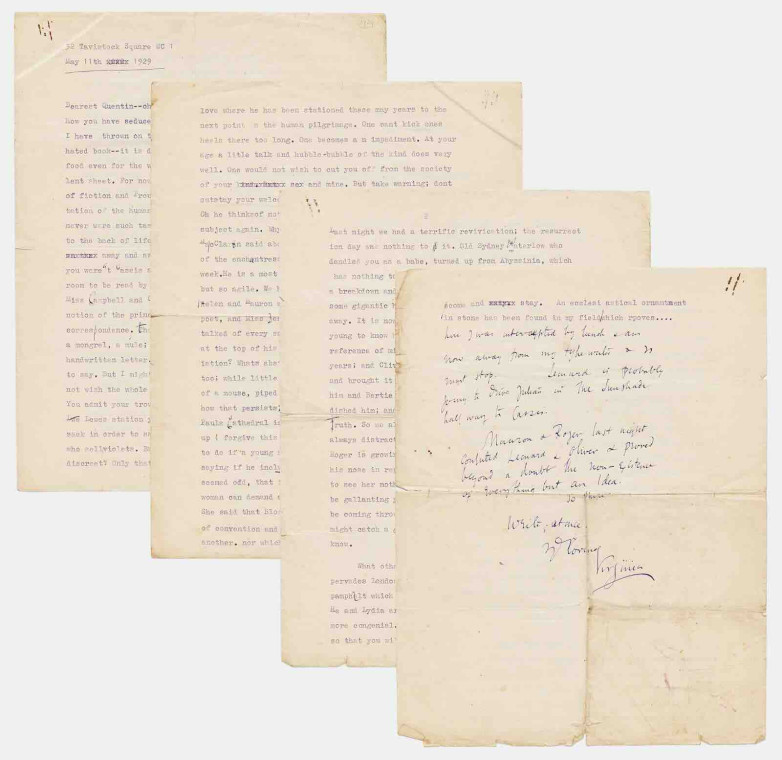 52 Tavistock Square WC 1
May 11th 1929
Dearest Quentin--oh
how you have seduce
I have thrown on t
hated book--it is d
food even for the w
lent sheet. For nou
of fiction and from
never were such tas
to the back of life
away and as
you weren't Vaseis a
room to be read by
Miss Campbell and
notion of the prin
correspondence. Th
a mongrel, a mule;
handwritten letter.
to say. But I might
not wish the whole
You admit your trou
Lewes station
seek in order to se
who sellviolets. Bu
discreet? Only that
love where he has been stationed these may years to the
next point in the human pilgrimage. One want kick ones
heels there too long. One becomes a n impediment. At your
age a litle talk and hubble-bubble of the kind does very
well. One would not wish to cut you off from the society
of your sex and mise. But take warning; dont
outstay your welco
Oh he thinksof not
subject again. Why
said abo
of the enchantress
week.He is a most
but so agile. He
Helen and Mauron a
poet, and Miss Jen
talked of every su
at the top of his
iction? Whats abst
too; while little
of a mouse, piped
how that persisto
Pauls Cathedral is
up ( forgive this
to do if a young
coping if he inclu
seemed odd, that
woman can demand a
She said that Bloo
of convention and
another. nor which
2
Last night we had a terrific revivication; the resurrect
ion day was nothing to it. Old Sydney Waterlow who
dandled you as a babe, turned up from Abyssinia, which
has nothing to
a breakdown and
some gigantic b
away. It is mos
young to know
reference of mi
years; and Cliv
and brought it
him and Bertie
dished him; and
Truth. So we al
always distract
Roger is growin
his nose in rep
to see her moth
be gallanting
be coming throu
might catch a
know.
What othe
pervades London
pamphlet which
He and Lydia ar
more congenial.
so that you wi
scome and stay. An esclest natical ornamment
in stone has been found in my field,which rpoves....
here I was interrupted by lunch & am
now away from my typewriter & so
must stop. Leonard is probably
going to drive Julian in the Sunshade
half way to Cassis.
Mauron & Roger last night
confuted Leonard & Oliver & proved
beyond a doubt the non-existence
of everything but an Idea.
So there
Write, at once
Yr loving
Virginia